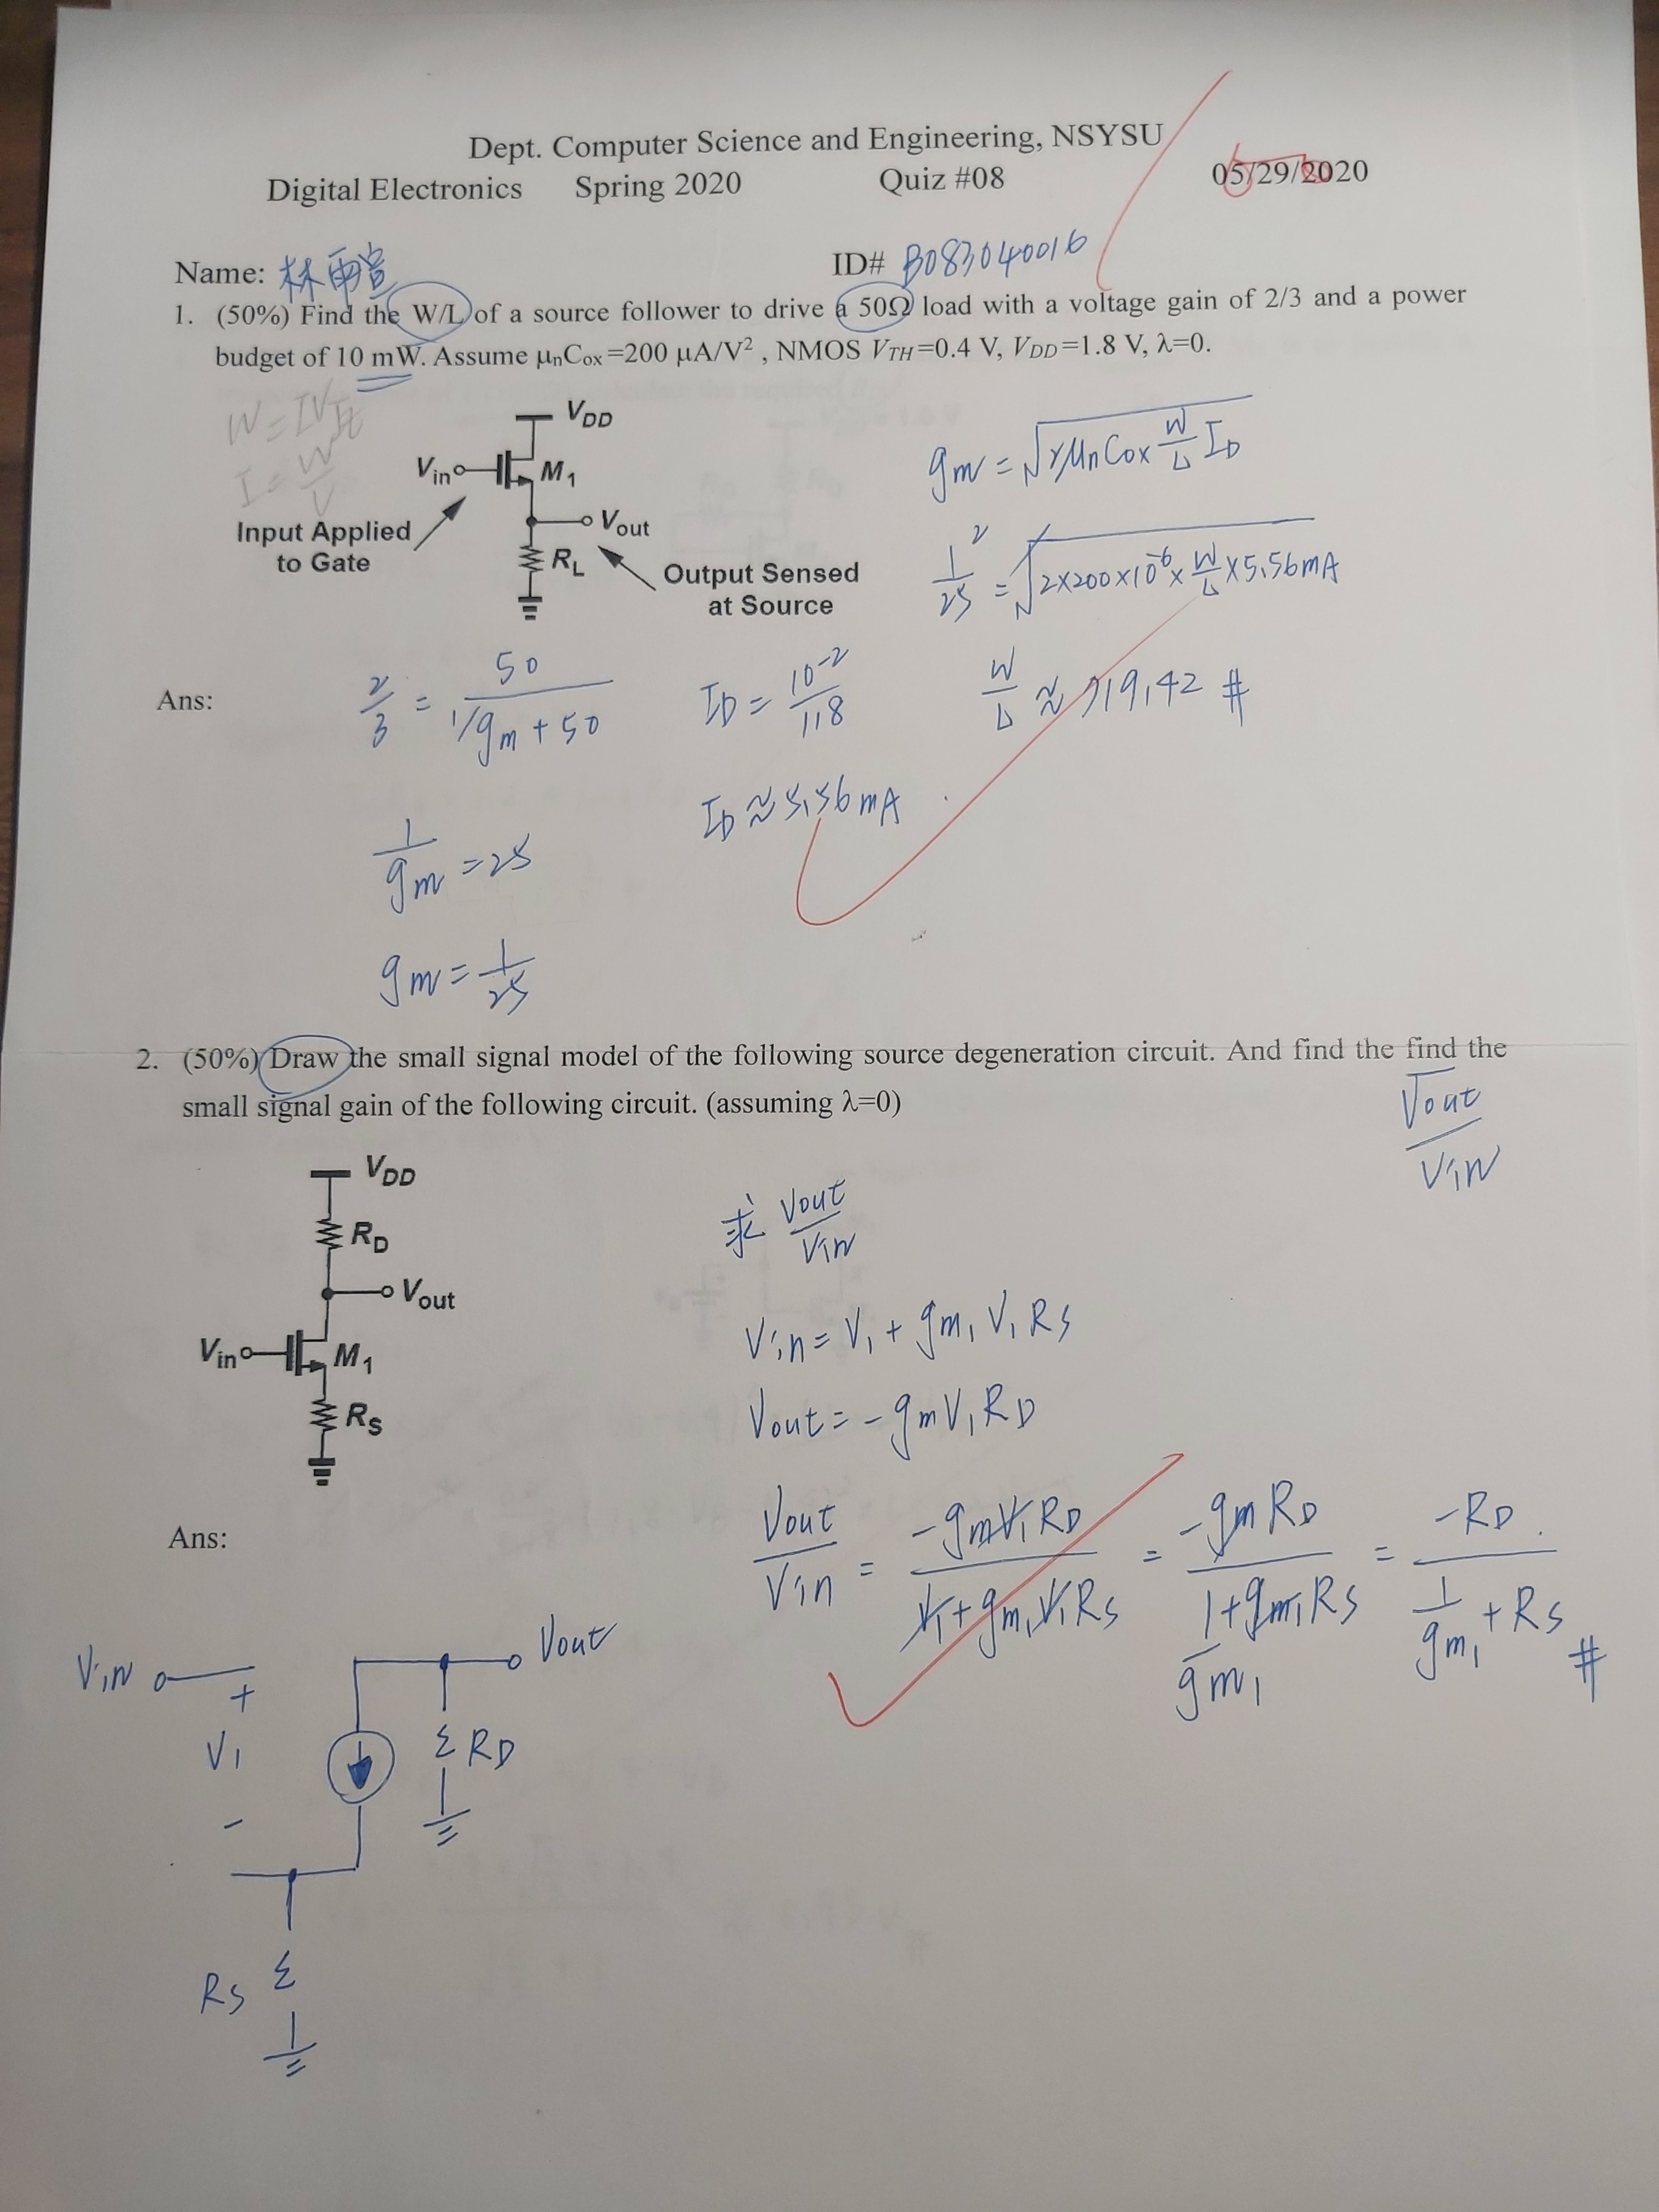 Dept. Computer Science and Engineering, NSYSU
Digital Electronics Spring 2020 Quiz #08 05/29/2020
Name: 林雨萱 ID# B083040016
1. (50%) Find the W/L of a source follower to drive a 50Ω load with a voltage gain of 2/3 and a power
budget of 10 mW. Assume μnCox=200 μA/V² , NMOS VTH=0.4 V, VDD=1.8 V, λ=0.
W=IVIt
I=W/V
VDD
Vin M1
Vout
RL
Input Applied
to Gate
Output Sensed
at Source
gm = √(2μnCox W/L ID)
1/25 ² = √(2×200×10⁻⁶× W/L ×5.56mA)
W/L ≈ 719.42 #
Ans:
2/3 = 50/(1/gm + 50)
ID = 10⁻²/1.8
ID ≈ 5.56mA
1/gm = 25
gm = 1/25
2. (50%) Draw the small signal model of the following source degeneration circuit. And find the find the
small signal gain of the following circuit. (assuming λ=0)
Vout/Vin
VDD
RD
Vout
Vin M1
RS
求 Vout/Vin
Vin = V1 + gm1 V1 RS
Vout = -gm V1 RD
Vout/Vin = -gm V1 RD/(V1 + gm1 V1 RS) = -gm RD/(1 + gm1 RS) = -RD/(1/gm1 + RS) #
gm1
Ans:
Vin
+
V1
-
Vout
RD
RS